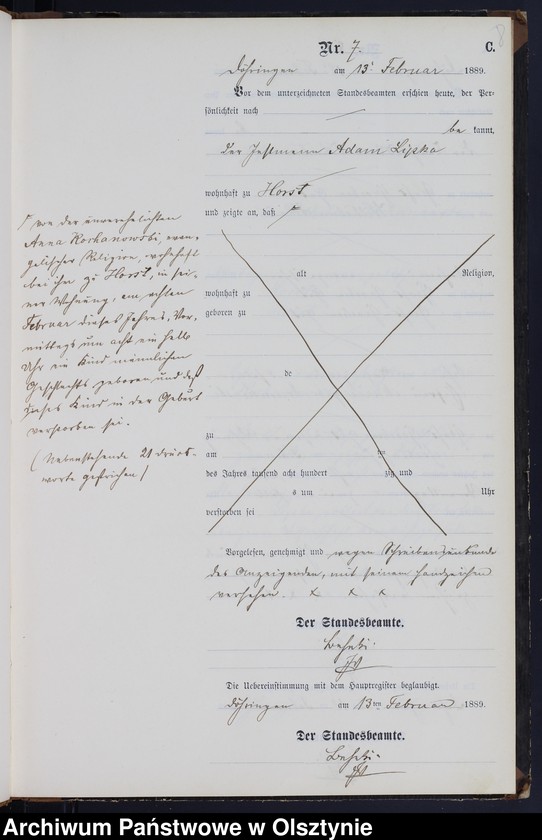 8
Nr. 7. C.
Döhringen am 13' Februar 1889.
Vor dem unterzeichneten Standesbeamten erschien heute, der Per-
sönlichkeit nach
be kannt,
der Instmann Adam
wohnhaft zu Horst
und zeigte an, daß
von der unverehelichten
Anna evan-
gelischer Religion, wohnhaft
bei ihm zu Horst, in sei-
ner Wohnung, am achten
Februar dieses Jahres, Vor-
mittags um acht ein halb
Uhr ein Kind männlichen
Geschlechts geboren und daß
dieses Kind in der Geburt
verstorben sei.
(Nebenstehende 21 Druck-
worte gestrichen)
alt Religion,
wohnhaft zu
geboren zu
de
zu
am ten
des Jahres tausend acht hundert zig und
s um Uhr
verstorben sei
Vorgelesen, genehmigt und wegen Schreibensunkunde
des Anzeigenden, mit seinem Handzeichen
versehen. x x x
Der Standesbeamte.
Die Uebereinstimmung mit dem Hauptregister beglaubigt.
Döhringen am 13ten Februar 1889.
Der Standesbeamte.
Archiwum Państwowe w Olsztynie